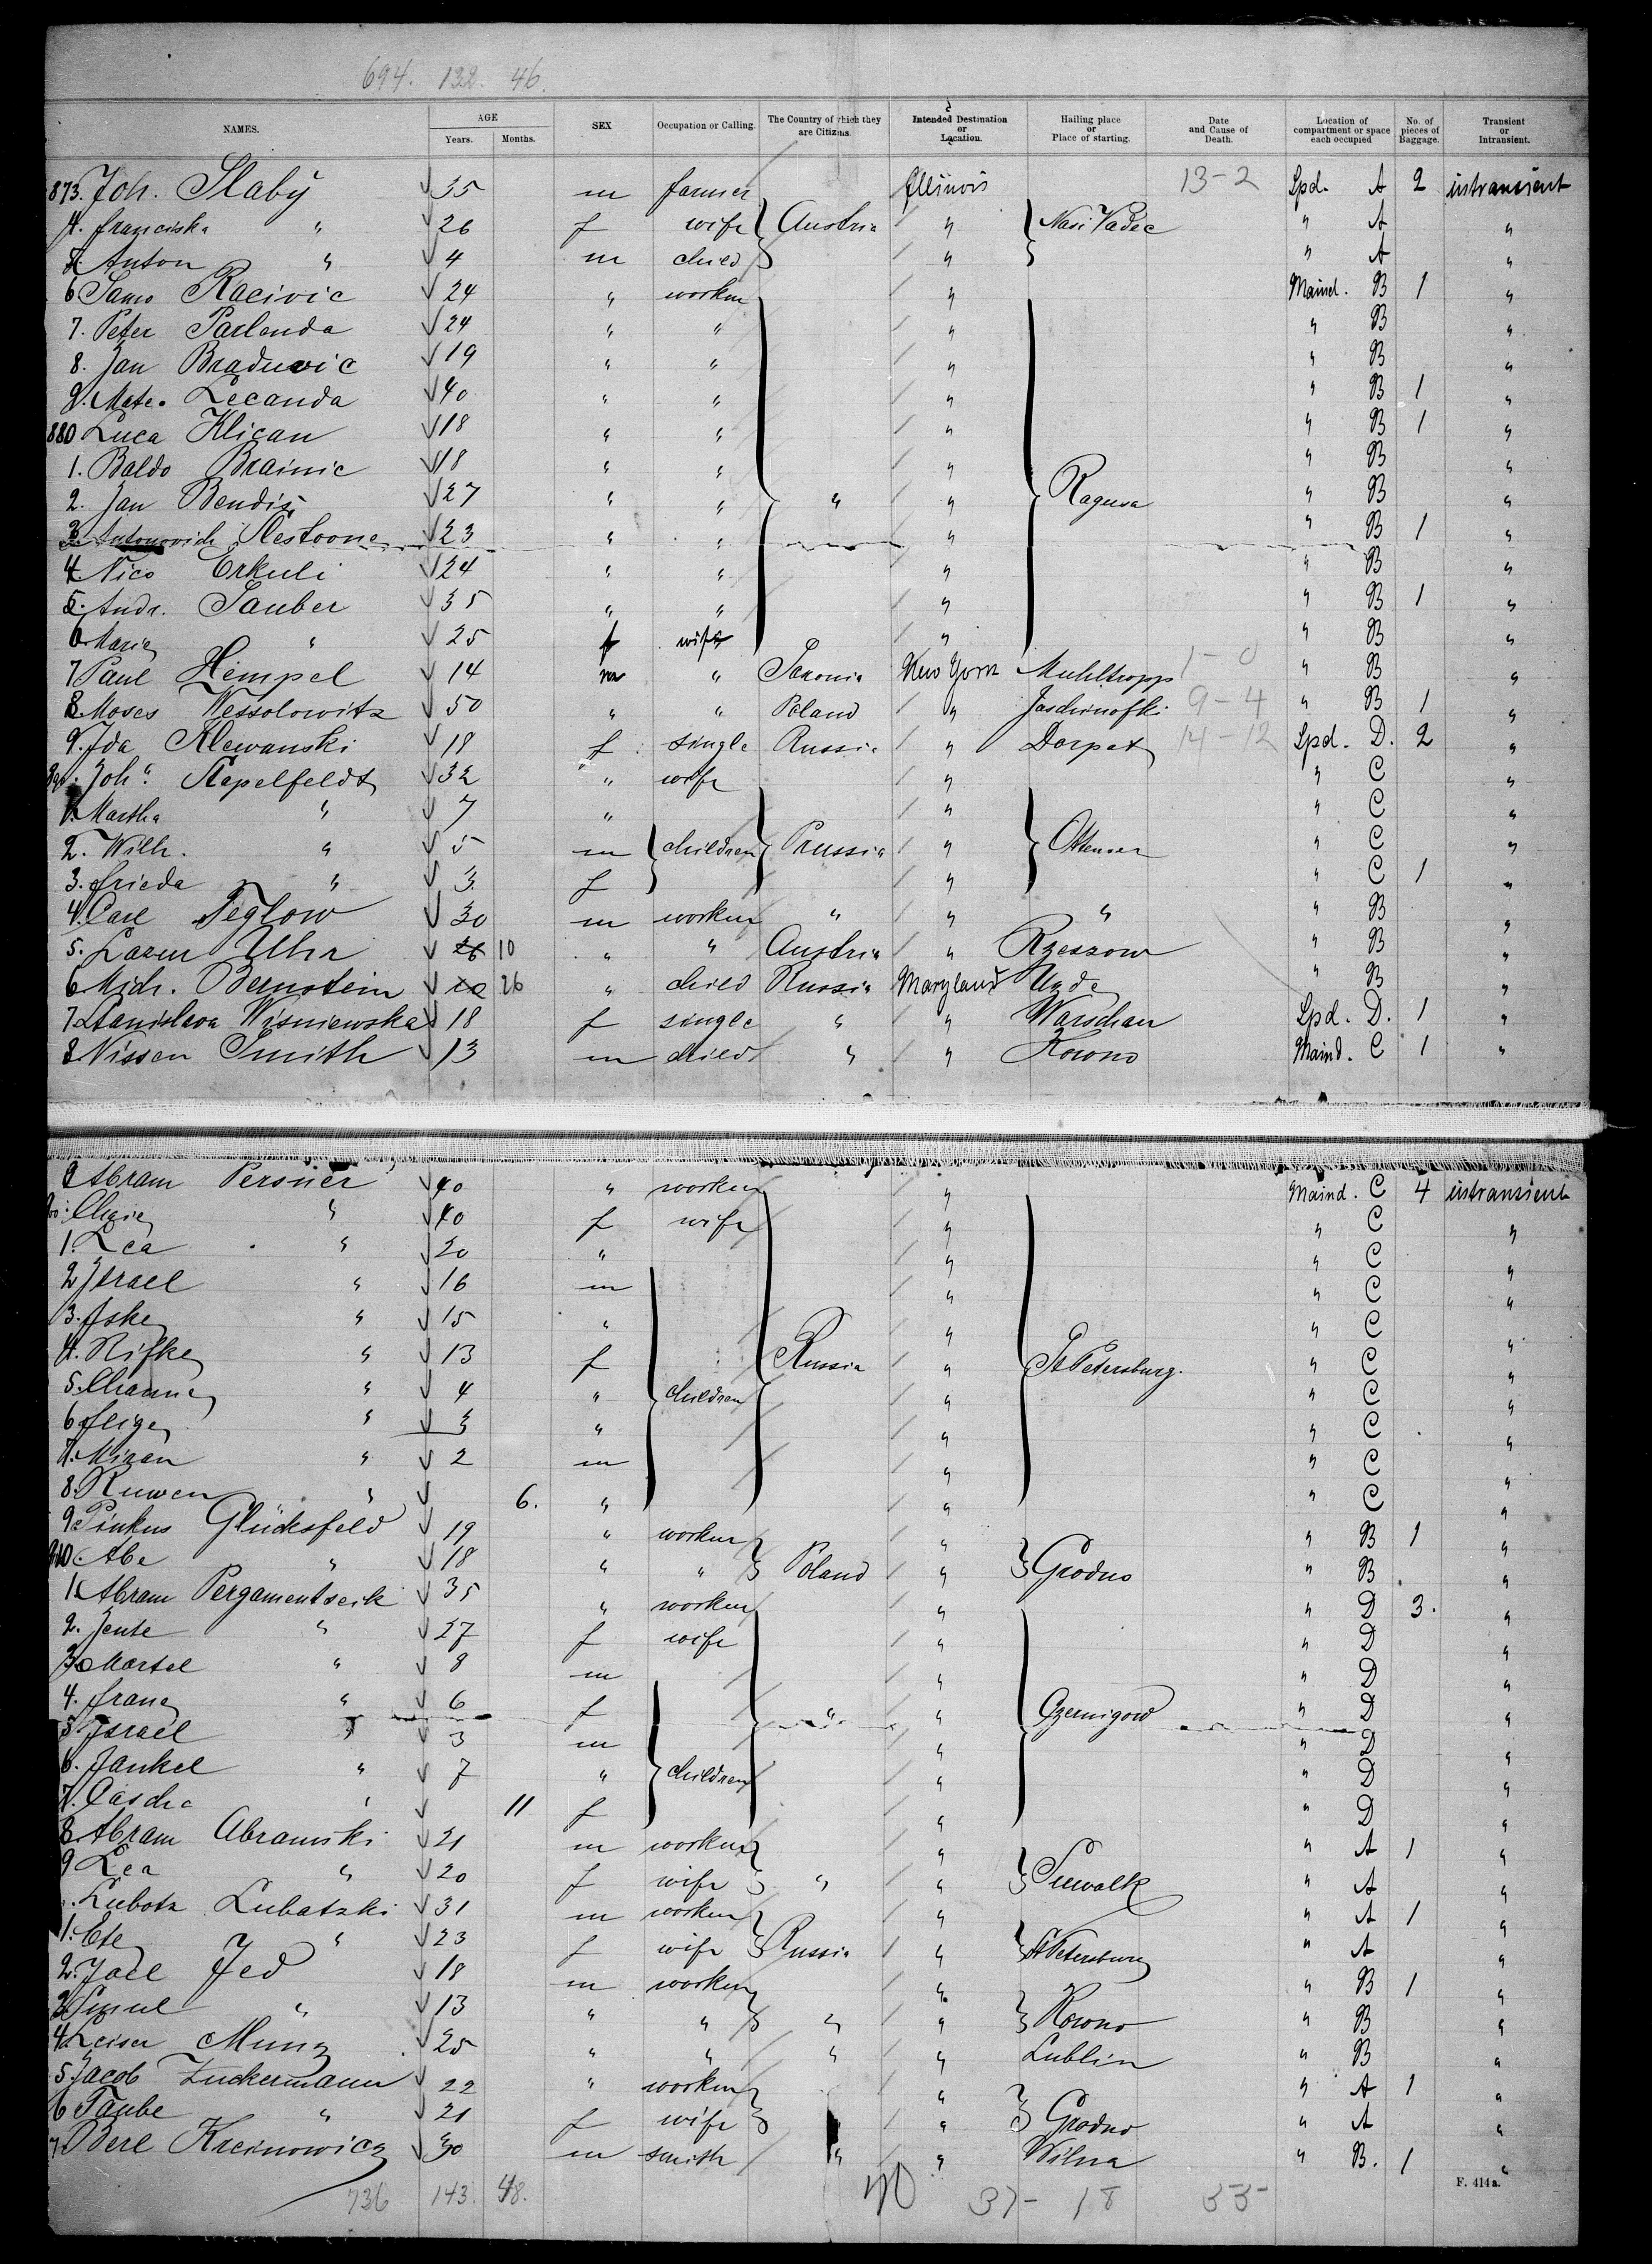 694. 132. 46.
NAMES. AGE Years. Months. SEX Occupation or Calling. The Country of which they are Citizens. Intended Destination or Location. Hailing place or Place of starting. Date and Cause of Death. Location of compartment or space each occupied No. of pieces of Baggage. Transient or Intransient.
873. Joh. Slaby 35 m farmer Illinois 13-2 Spd. A 2 intransient
4. Franciska " 26 f wife Austria " " A "
5. Anton " 4 m child " " A "
6 Samo Racivic 24 " worker " Maind. B 1 "
7. Peter Parlenda 24 " " " " B "
8. Jan Braduvic 19 " " " " B "
9. Mate. Lecanda 40 " " " " B 1 "
880 Luca Klican 18 " " " " B 1 "
1. Baldo Brainic 18 " " " " B "
2. Jan Bendis 27 " " " " Ragusa " B "
3. Antonovich 23 " " " " B 1 "
4. Nico Erkuli 24 " " " " B "
5. Andr. Sauber 35 " " " " B 1 "
6 Marie " 25 f wife " " B "
7 Paul Hempel 14 m " Saxonia New York Muhltropp 1-0 " B "
8. Moses Wessolowitz 50 " " Poland " 9-4 " B 1 "
9. Ida Klewanski 18 f single Russia " Dorpat 14-12 Spd. D. 2 "
890. Joh. Stapelfeldt 32 " wife " " C "
1. Martha " 7 " " " C "
2. Wilh. " 5 m children Prussia " Ottensen " C "
3. Frieda " 3 f " " C 1 "
4. Carl Teglow 30 m worker " " " " B "
5. Lazar Uhr 26 10 " " Austria " Rzeszow " B "
6. Mich. Bernstein 26 " child Russia Maryland " B "
7 Stanislava Wisniewska 18 f single " " Warschau Spd. D. 1 "
8 Nissen Smith 13 m child " " Kowno Maind. C 1 "
9 Abram Persner 40 " worker " Maind. C 4 intransient
" 40 f wife " " C "
1. Lea " 20 " " " C "
2 Israel " 16 m " " C "
3. " 15 " " " C "
4. Rifke " 13 f Russia " St Petersburg. " C "
5. Channe " 4 " children " " C "
6 " 3 " " " C "
7. " 2 m " " C "
8. Ruwen " 6. " " " C "
9. Pinkus Glücksfeld 19 " worker " " B 1 "
910. Abe " 18 " " Poland " Grodno " B "
1. Abram Pergamentseik 35 " worker " " D 3. "
2. Jente " 27 f wife " " D "
3. " 8 m " " D "
4. " 6 f " " Czernigow " D "
5 Israel " 3 m " " D "
6. Jankel " 7 " children " " D "
7. " 11 f " " D "
8 Abram Abramski 21 m worker " " A 1 "
9 Lea " 20 f wife " " Suwalk " A "
Lubatzki 31 m worker " " A 1 "
1. Ete " 23 f wife Russia " St Petersburg " A "
2. Joel Jed 18 m worker " " B 1 "
3 " 13 " " " " Kowno " B "
4 Leiser Munz 25 " " " " Lublin " B "
5. Jacob Zuckermann 22 " worker " " A 1 "
6 Taube " 21 f wife " Grodno " A "
7. Berl Kreinowicz 30 m smith " " Wilna " B. 1 "
736 143. 48. 37- 18 33-
F. 414 a.